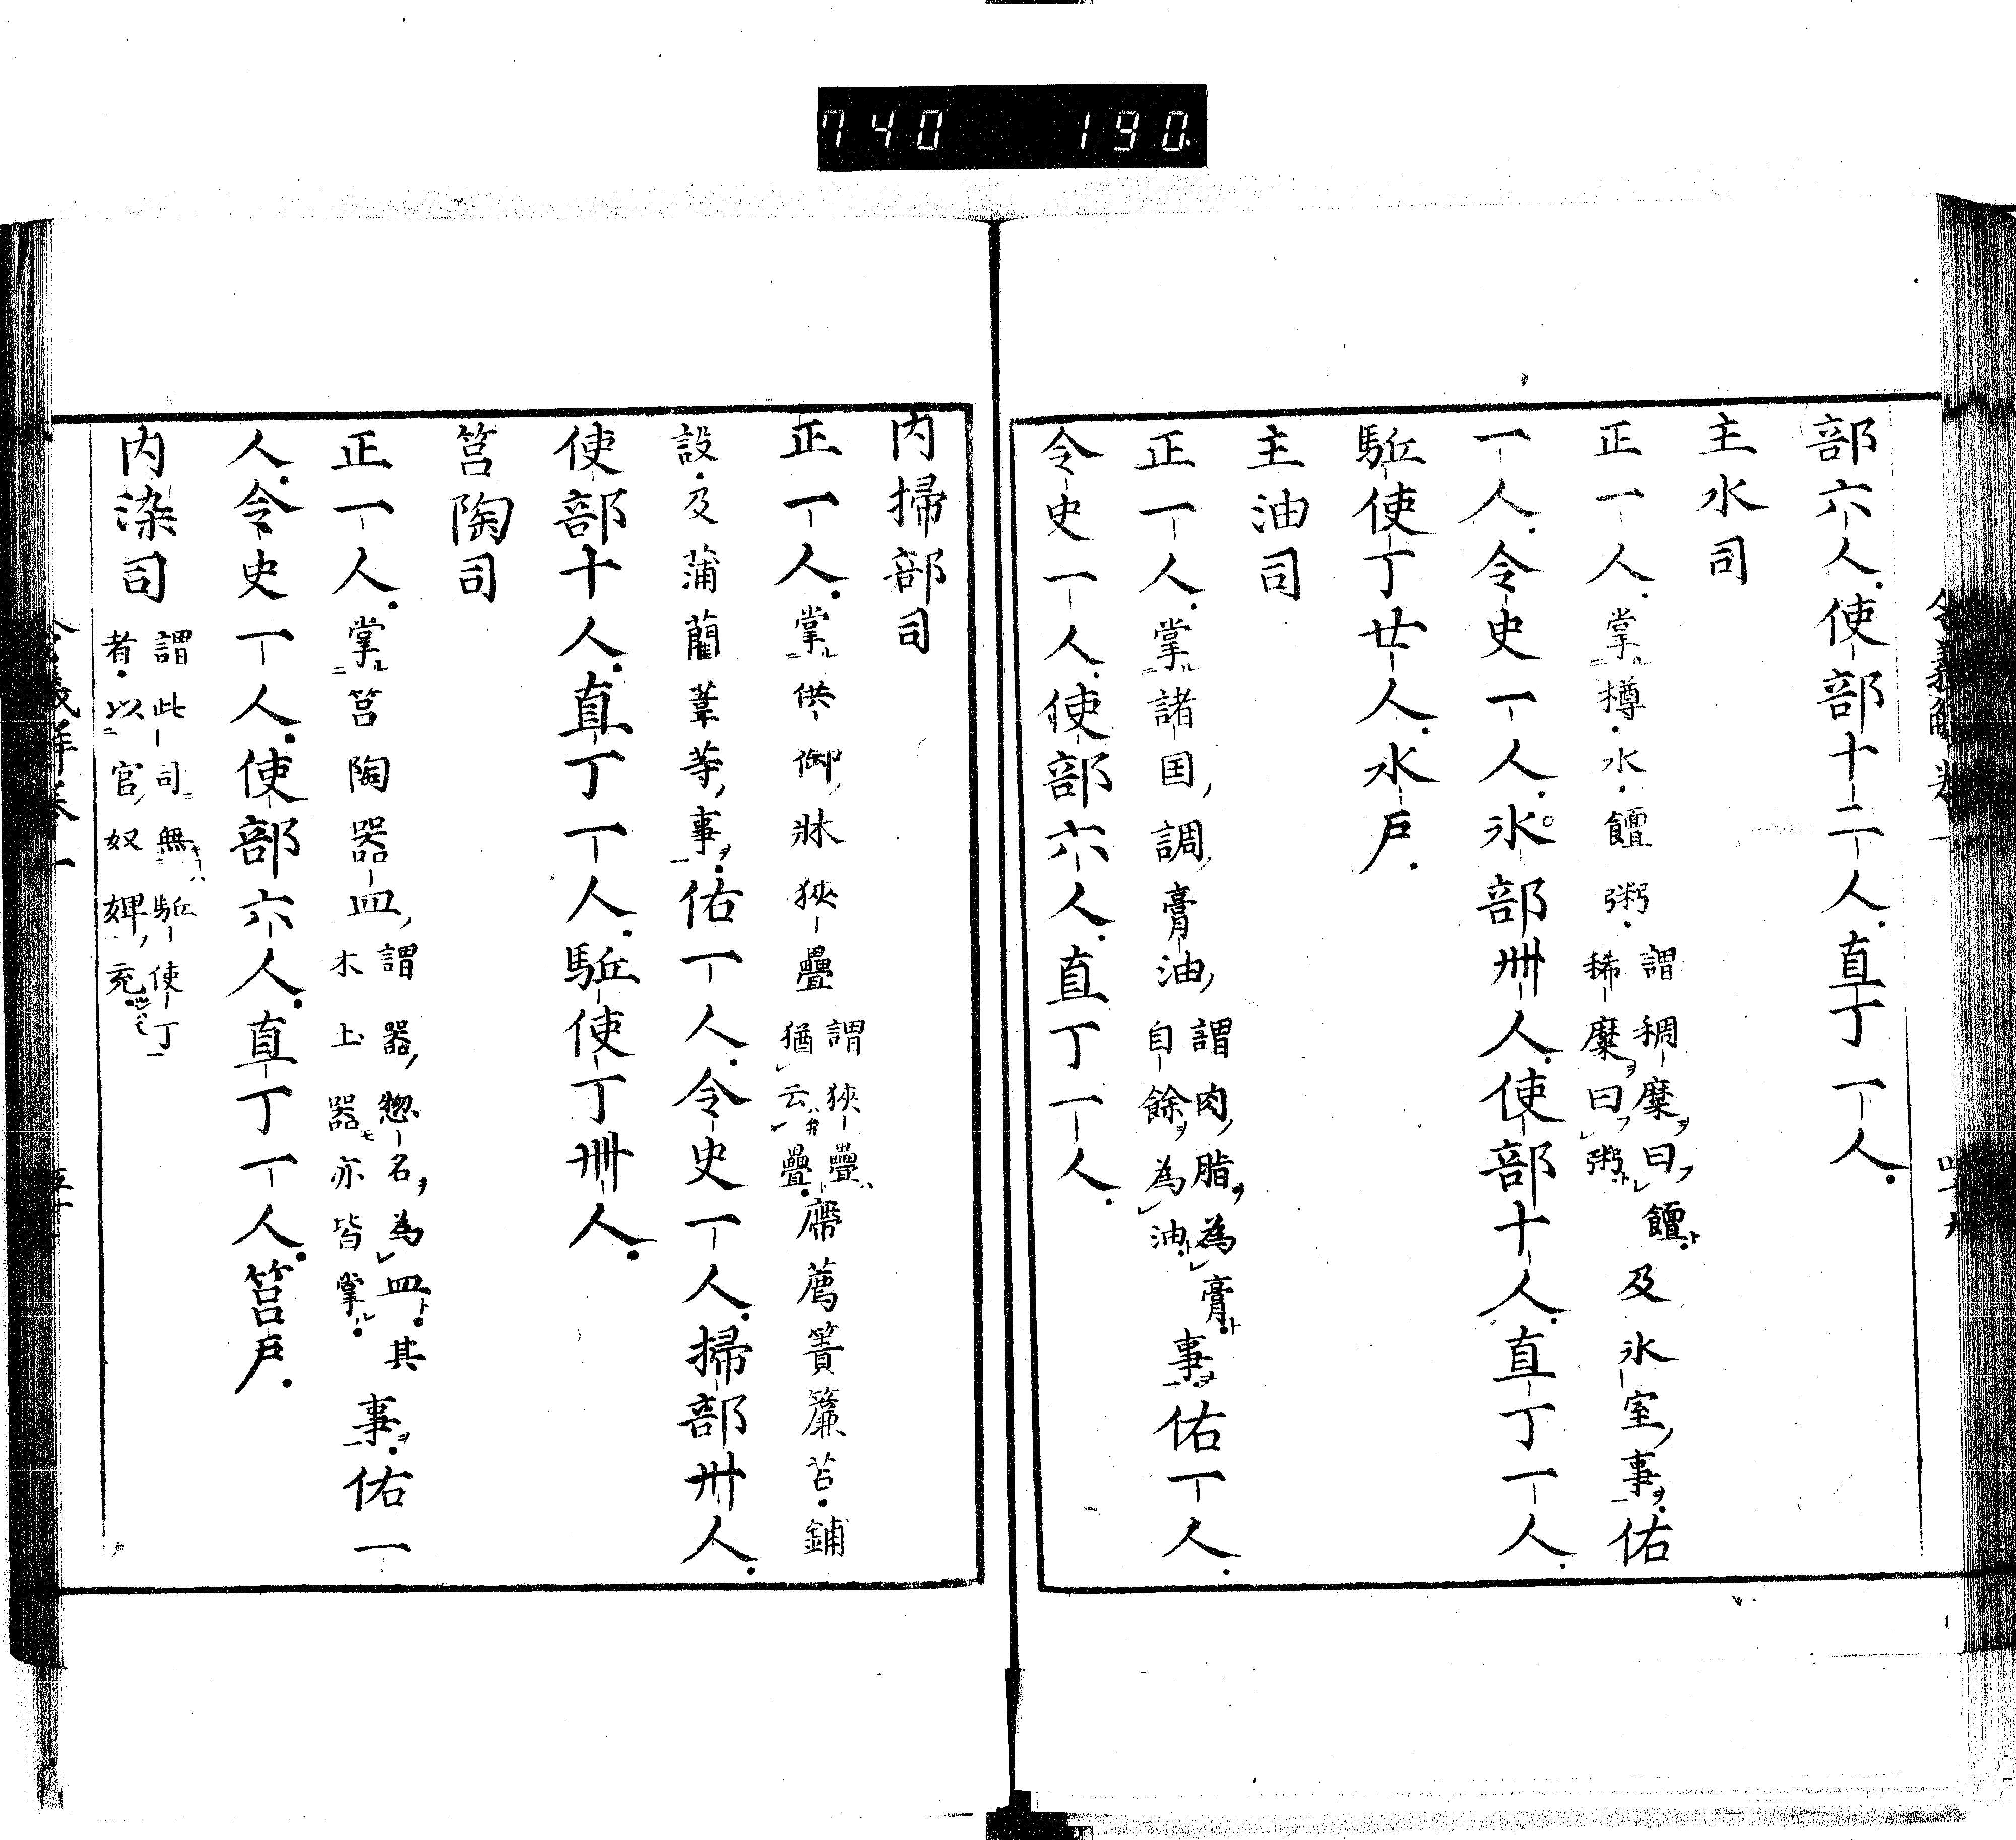 740 190
部六人使部十二人直丁一人
主水司
正一人掌樽水饘粥謂稠糜曰饘稀糜曰粥及氷室事佑
一人令史一人氷部卌人使部十人直丁一人
駈使丁廿人水戸
主油司
正一人掌諸国調膏油謂肉脂為膏自餘為油事佑一人
令史一人使部六人直丁一人
内掃部司
正一人掌供御牀狹疊謂狹疊猶云疊席薦簀簾苫鋪
設及蒲藺葦等事佑一人令史一人掃部卅人
使部十人直丁一人駈使丁卌人
筥陶司
正一人掌筥陶器皿謂器惣名為皿其木土器亦皆掌事佑一
人令史一人使部六人直丁一人筥戸
内染司謂此司無駈使丁者以官奴婢充